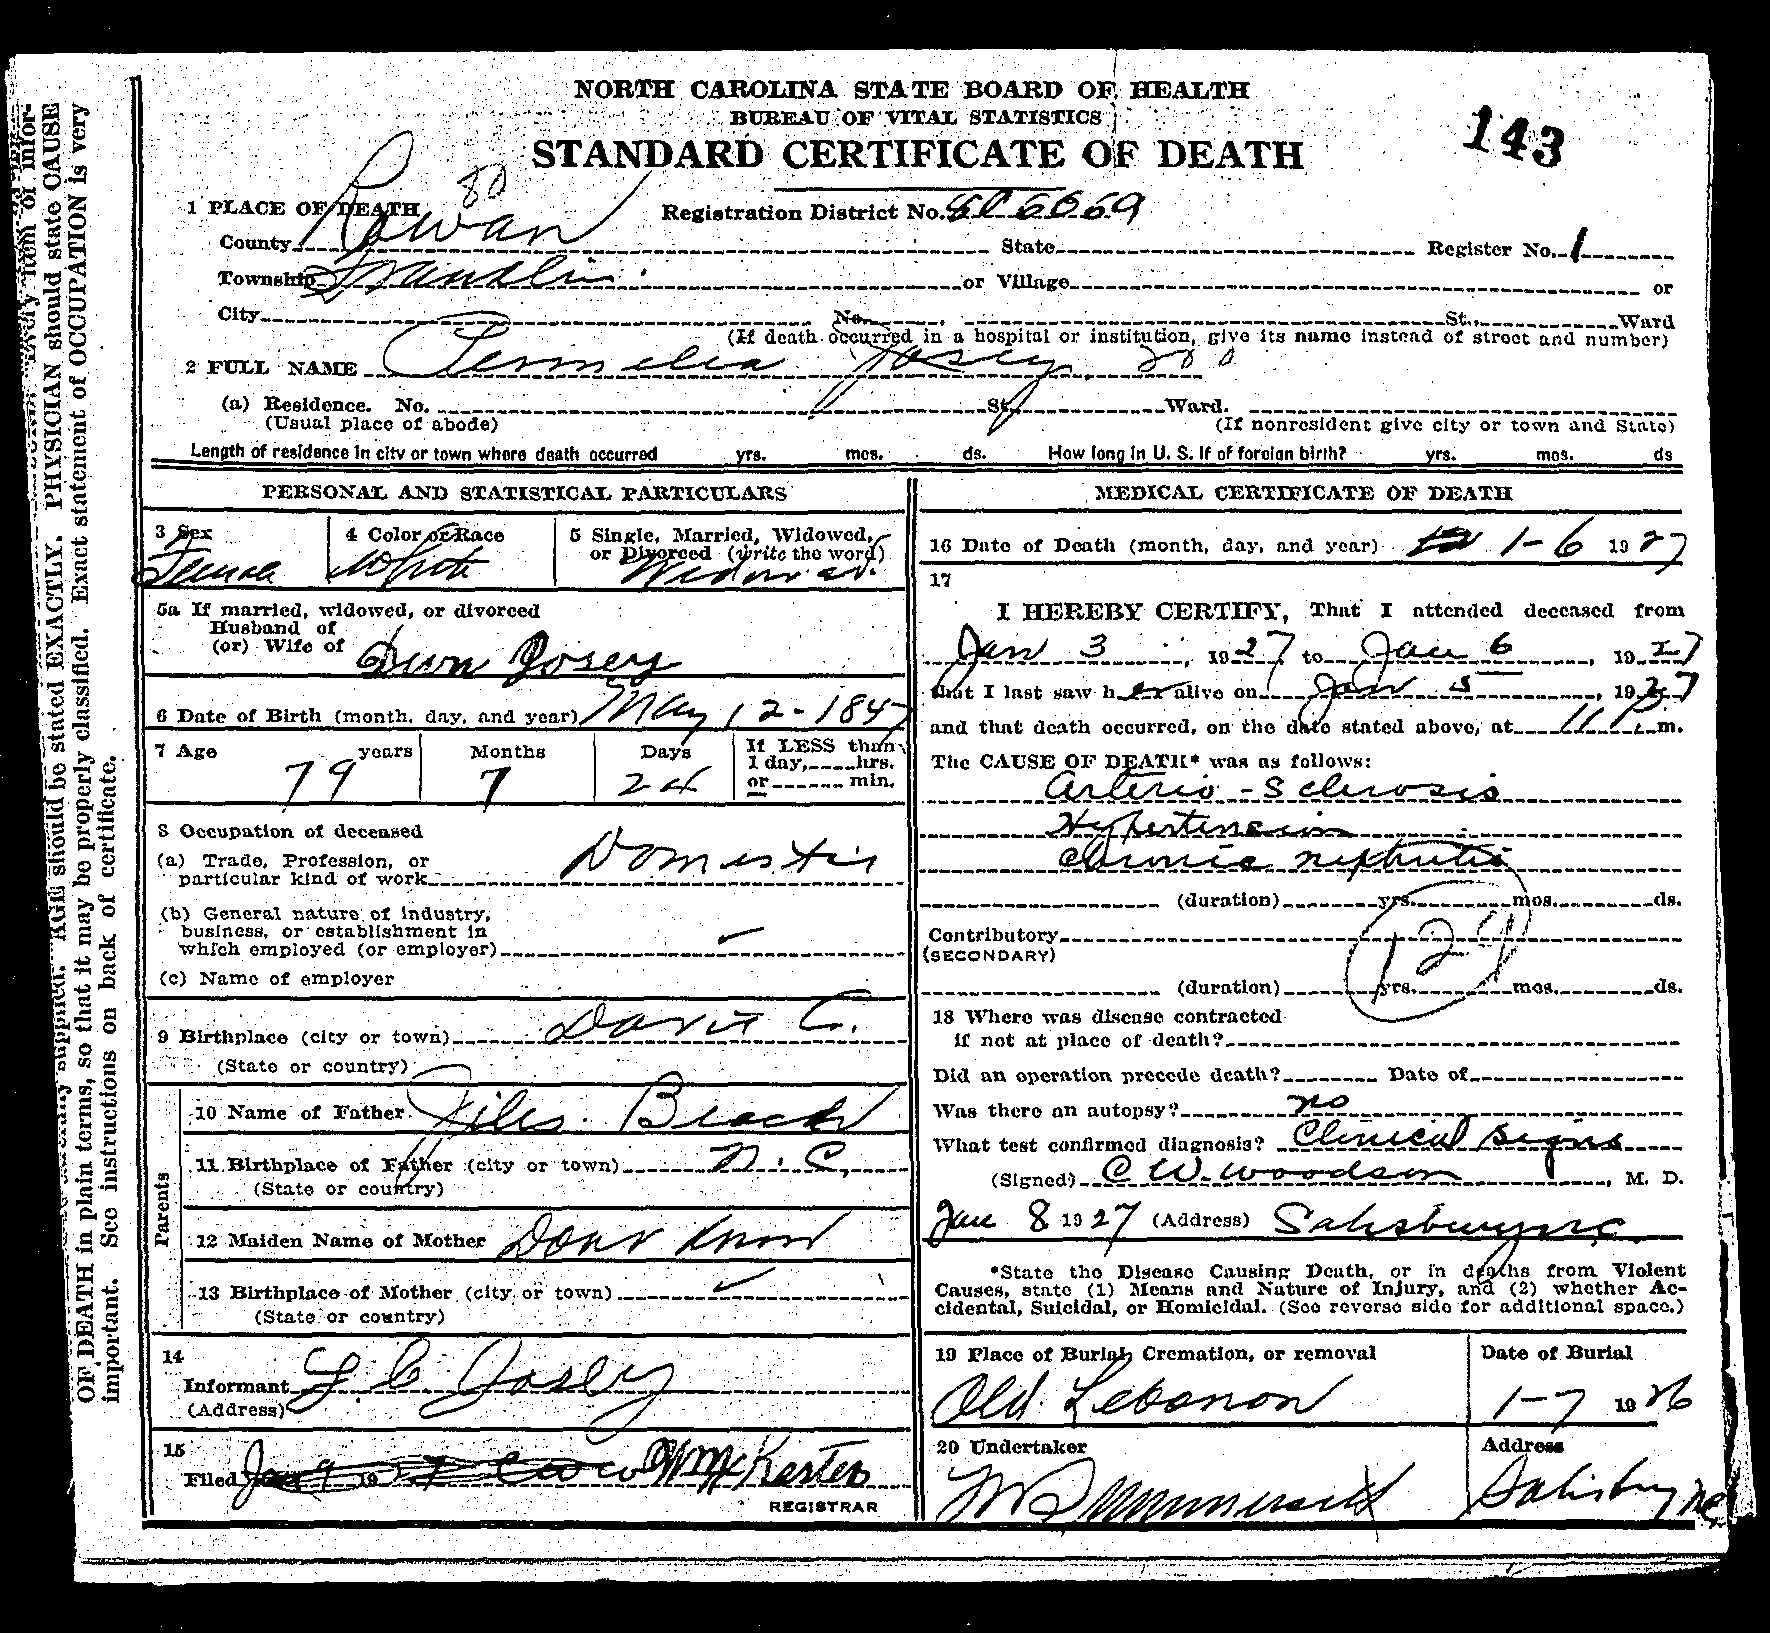 NORTH CAROLINA STATE BOARD OF HEALTH
BUREAU OF VITAL STATISTICS
STANDARD CERTIFICATE OF DEATH
143
80
1 PLACE OF DEATH
Registration District No.
County Rowan State Register No. 1
Township Franklin or Village or
City No. St., Ward
(If death occurred in a hospital or institution, give its name instead of street and number)
2 FULL NAME Permelia Josey
(a) Residence. No. St., Ward.
(Usual place of abode) (If nonresident give city or town and State)
Length of residence in city or town where death occurred yrs. mos. ds. How long in U. S. if of foreign birth? yrs. mos. ds
PERSONAL AND STATISTICAL PARTICULARS
3 Sex 4 Color or Race 5 Single, Married, Widowed,
or Divorced (write the word)
Female White Widowed.
5a If married, widowed, or divorced
Husband of
(or) Wife of Josey
6 Date of Birth (month, day, and year) May 12-1847
7 Age years Months Days If LESS than
1 day, hrs.
or min.
79 7 24
8 Occupation of deceased
(a) Trade, Profession, or
particular kind of work Domestic
(b) General nature of industry,
business, or establishment in
which employed (or employer)
(c) Name of employer
9 Birthplace (city or town) Davie C.
(State or country)
Parents
10 Name of Father Giles Beach
11 Birthplace of Father (city or town) N. C.
(State or country)
12 Maiden Name of Mother Dont know
13 Birthplace of Mother (city or town)
(State or country)
14
Informant C. Josey
(Address)
15
Filed Jan 9 1927
REGISTRAR
MEDICAL CERTIFICATE OF DEATH
16 Date of Death (month, day, and year) 1-6 1927
17
I HEREBY CERTIFY, That I attended deceased from
Jan 3, 1927 to Jan 6, 1927
that I last saw her alive on Jan 5, 1927
and that death occurred, on the date stated above, at 11 P. m.
The CAUSE OF DEATH* was as follows:
Arterio-Sclerosis
Hypertension
Chronic nephritis
(duration) yrs. mos. ds.
129
Contributory
(SECONDARY)
(duration) yrs. mos. ds.
18 Where was disease contracted
if not at place of death?
Did an operation precede death? Date of
Was there an autopsy? no
What test confirmed diagnosis? Clinical signs
(Signed) C W. Woodson, M. D.
Jan 8 1927 (Address) Salisbury N.C.
*State the Disease Causing Death, or in deaths from Violent
Causes, state (1) Means and Nature of Injury, and (2) whether Ac-
cidental, Suicidal, or Homicidal. (See reverse side for additional space.)
19 Place of Burial, Cremation, or removal Date of Burial
Old Lebanon 1-7 1926
20 Undertaker Address
Summersett Salisbury NC
mation should be carefully supplied. AGE should be stated EXACTLY. PHYSICIAN should state CAUSE
OF DEATH in plain terms, so that it may be properly classified. Exact statement of OCCUPATION is very
important. See instructions on back of certificate.